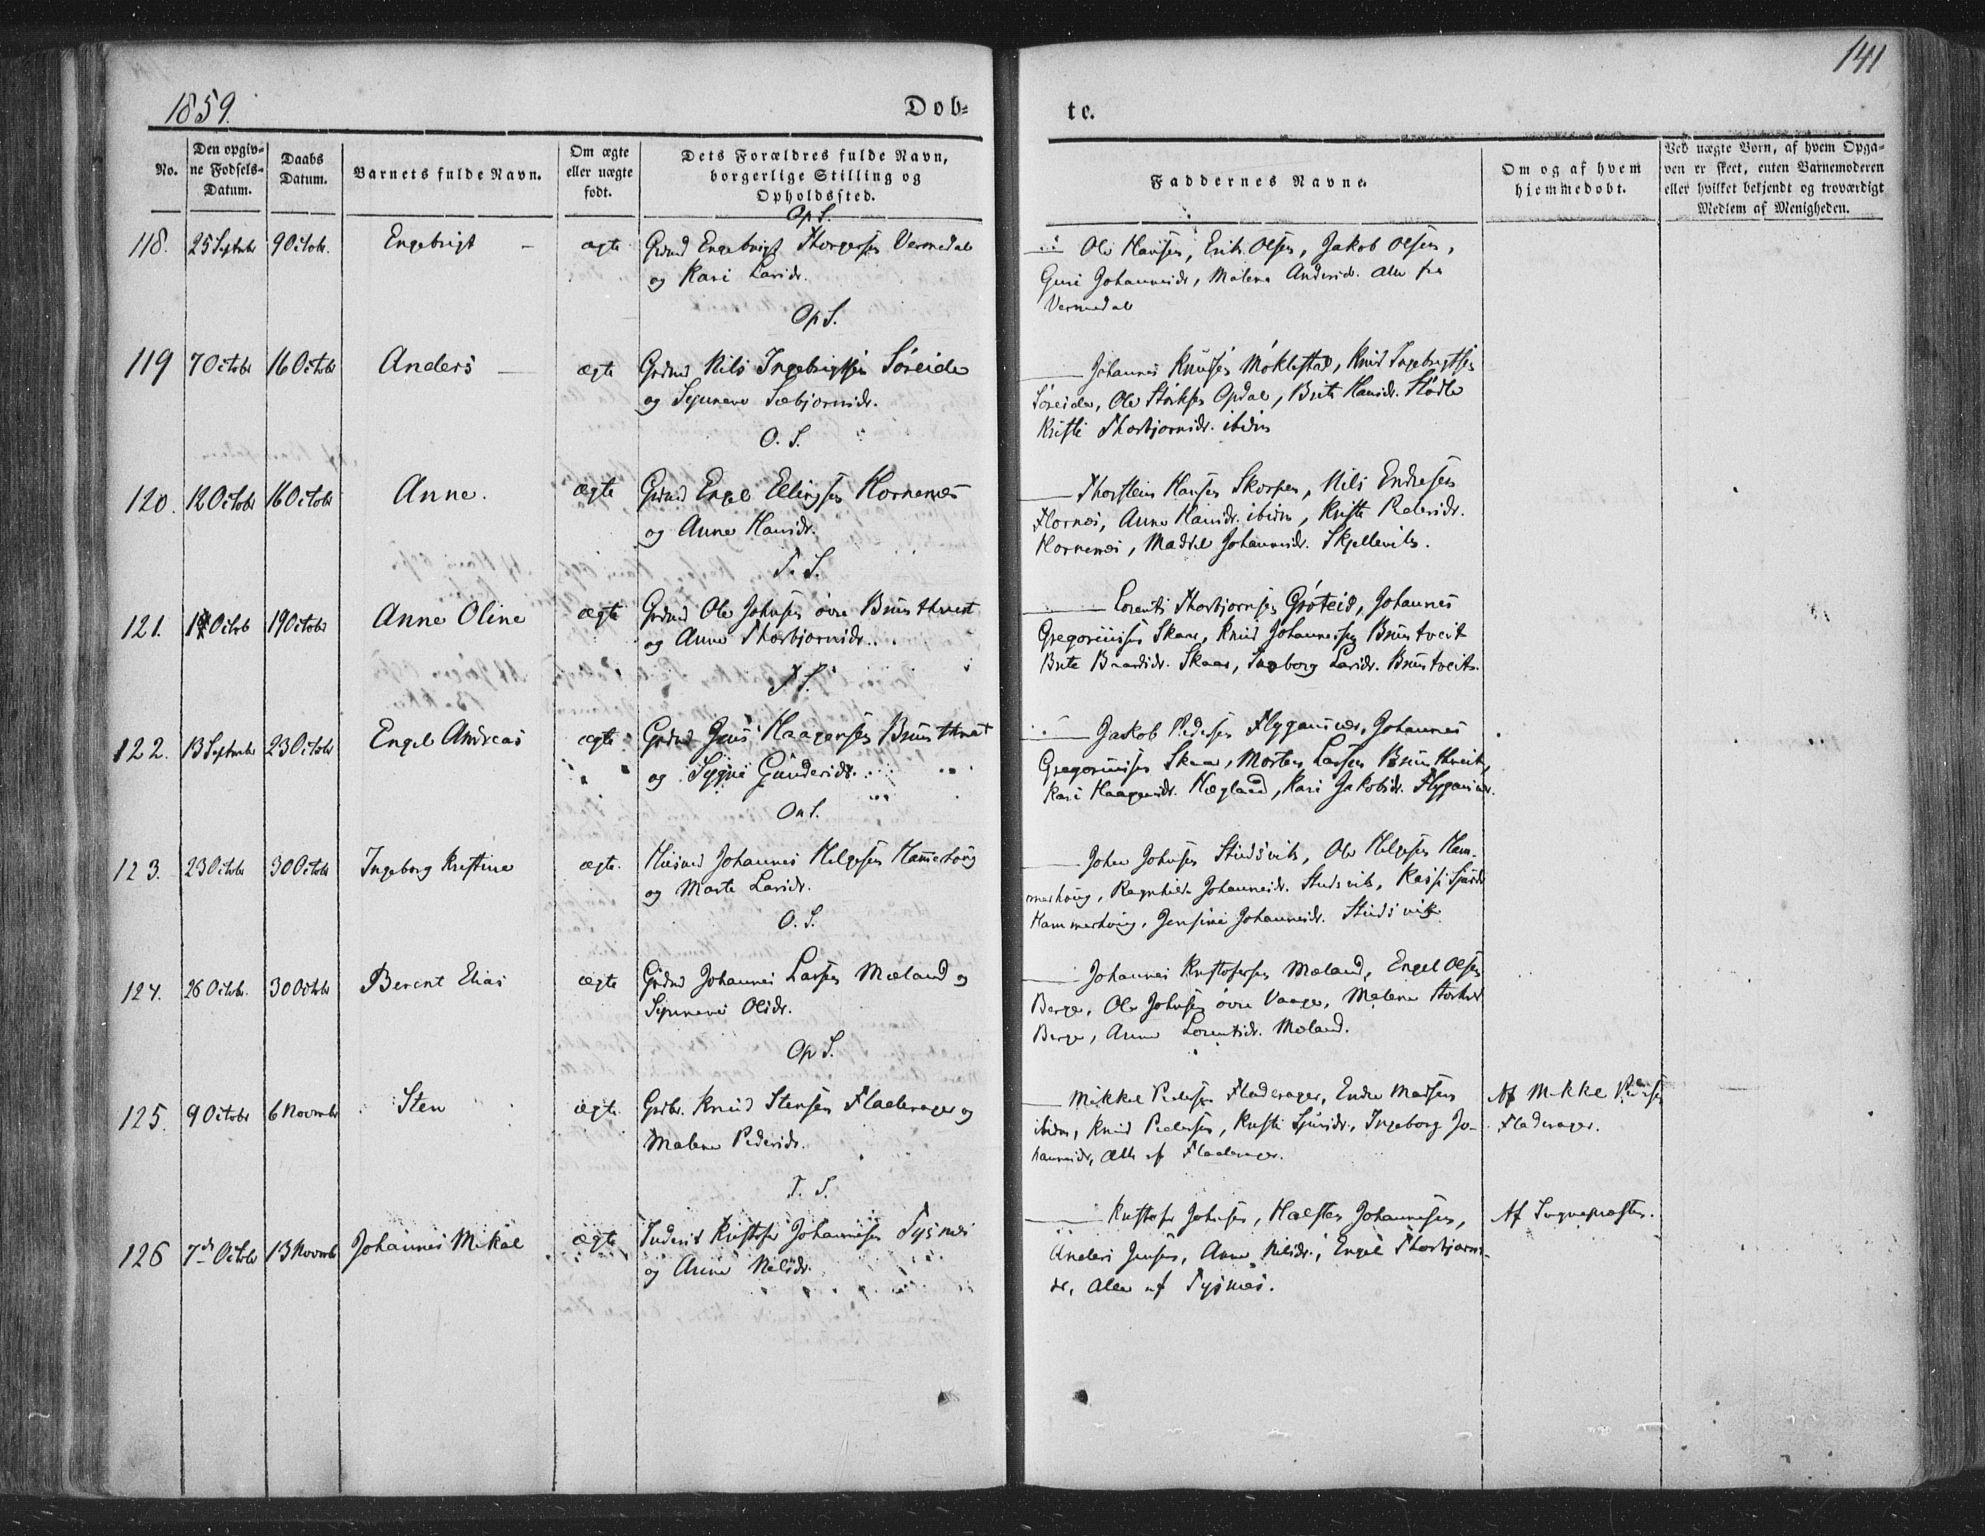 1859.
Døb-
te.
141
No.
Den opgiv-
ne Fødsels-
Datum.
Daabs
Datum.
Barnets fulde Navn.
Om ægte
eller uægte
født.
Dets Forældres fulde Navn,
borgerlige Stilling og
Opholdssted.
Faddernes Navne.
Om og af hvem
hjemmedøbt.
Ved uægte Børn, af hvem Opga-
ven er skeet, enten Barnemoderen
eller hvilket bekjendt og troværdigt
Medlem af Menigheden.
Op S.
118. 25 Septmbr 9 Octobr. Engebrigt ægte Grdmd Engebrigt Thorgersen Vermedal
og Kari Larsdr.
Ole Hansen, Erik Olsen, Jakob Olsen,
Guri Johannesdr, Malene Andersdr. alle fra
Vermedal
Op S.
119 7 Octobr 16 Octobr Anders ægte Grdmd Nils Ingebrigtsen Søreide
og Synneve Sæbjørnsdr.
Johannes Knudsen Møklestad, Knud Ingebrigtsen
Søreide, Ole Opdal, Brite Hansdr. Hødle
Kristi Thorbjørnsdr. ibidm
O. S.
120. 12 Octobr 16 Octobr Anne. ægte Grdmd Engel Ellingsen Hornenes
og Anne Hansdr.
Thorstein Hansen Skorpen, Nils Endresen
Hornes, Anne Hansdr. ibidm, Kristi Pedersdr.
Hornenes, Madsel Johannesdr. Skjellevik.
T. S.
121. 14 Octob 19 Octobr Anne Oline ægte Grdmd Ole Johnsen øvre Bruntveit
og Anne Thorbjørnsdr.
Lorents Thorbjørnsen Grøteid, Johannes
Gregoriusen Skaar, Knud Johannessen Bruntveit
Brite Baardsdr. Skaar, Ingeborg Larsdr. Bruntveit.
T. S.
122. 13 Septmbr 23 Octobr Engel Andreas ægte Grdmd Jens Haagensen Bruntveit
og Sygni Gundersdr.
Jakob Pedersen Flygansvær, Johannes
Gregoriusen Skaar, Morten Larsen Bruntveit,
Kari Haagensdr. Hægland, Kari Jakobsdr. Flygansvær.
On S.
123. 23 Octobr 30 Octobr Ingeborg Kristine ægte. Huusmd Johannes Helgesen Hammerhoug
og Marte Larsdr.
John Johnsen Studsvik, Ole Helgesen Ham-
merhoug, Ragnhild Johannesdr. Studsvik, Sjursdr
Hammerhoug, Jensine Johannesdr. Studsvik
O. S.
124. 26 Octob. 30 Octobr Berent Elias ægte Grdmd Johannes Larsen Mæland og
Synneve Olsdr.
Johannes Kristofersen Mæland, Engel Olsen
Berge, Ole Johnsen øvre Vaage, Malene
Berge, Anne Lorentsdr. Mæland.
Op S.
125. 9 Octobr 6 Novmbr Sten ægte Grdbr. Knud Stensen Fladerager og
Malene Pedersdr.
Mikkel Pedersen Fladerager, Endre Madsen
ibidm, Knud Pedersen, Kristi Sjursdr., Ingeborg Jo-
hannesdr, alle af Fladerager.
Af Mikkel Pedersen
Fladerager.
T. S.
126 7de Octobr 13 Novmbr Johannes Mikal ægte Inderst Kristofer Johannesen Tysnes
og Anne Nilsdr.
Kristofer Johnsen, Halsten Johannesen,
Anders Jensen, Anne Nilsdr., Engel Thorbjørns-
dr, alle af Tysnes.
Af Sognepræsten.